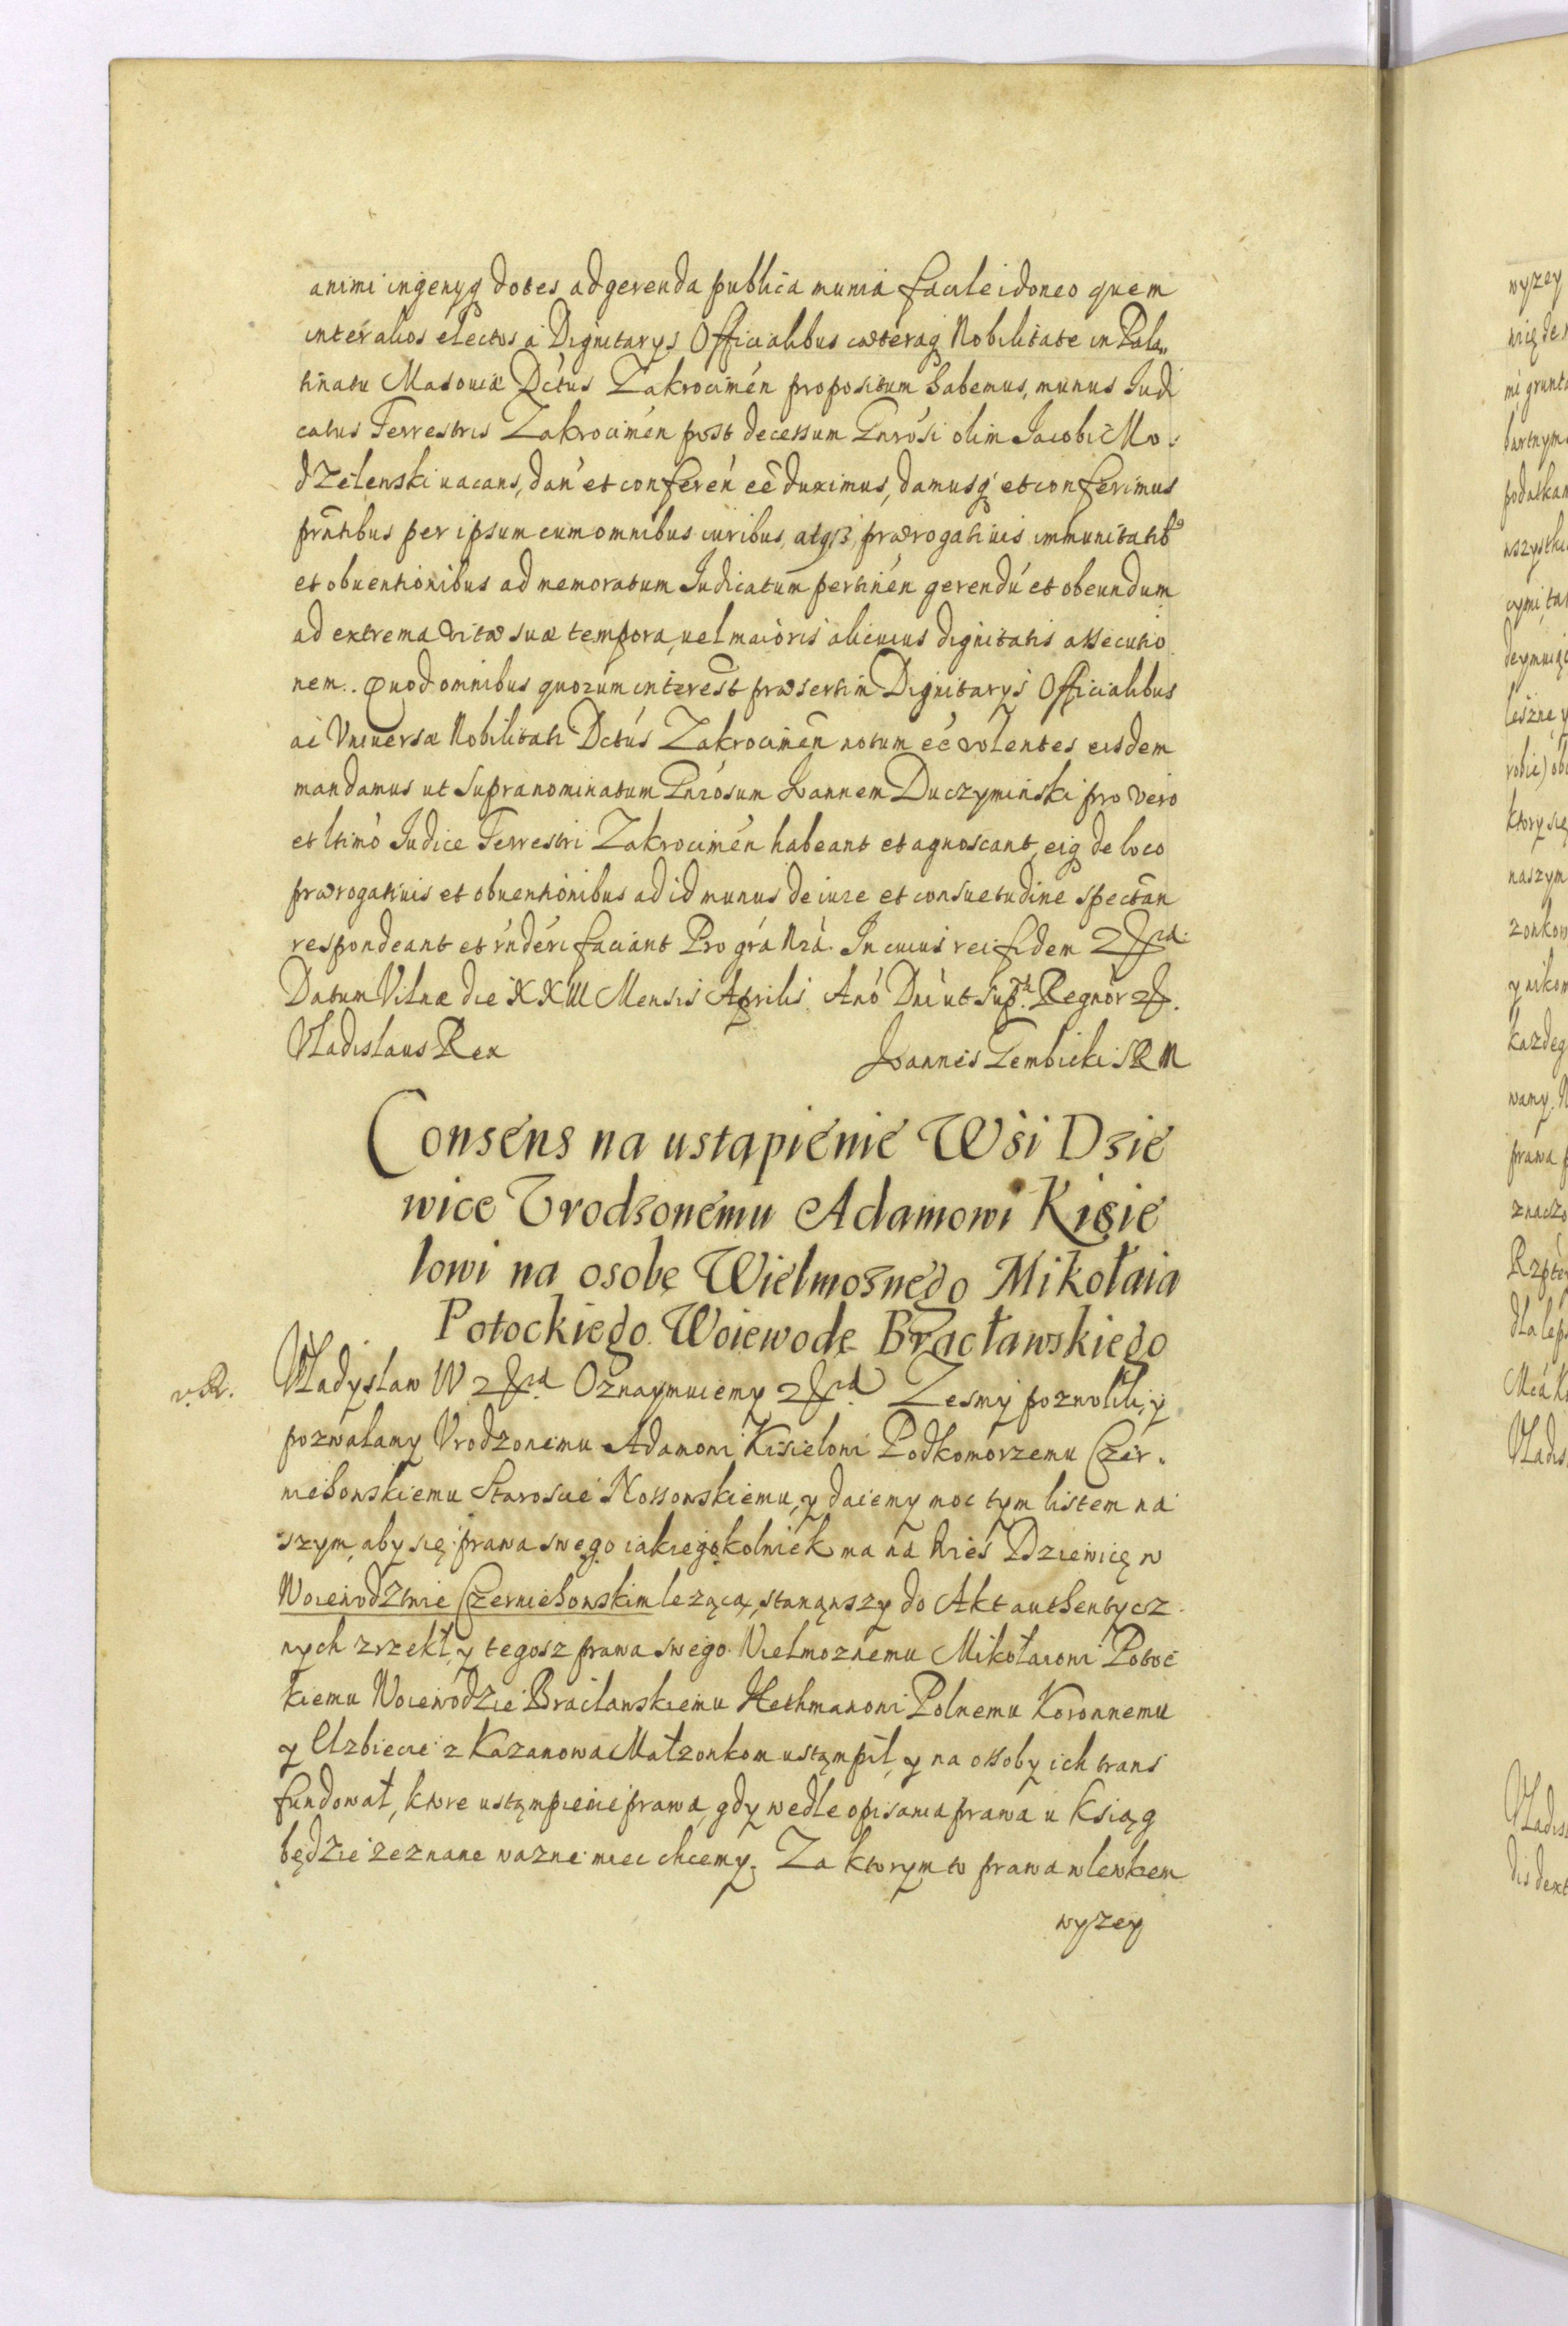 animi ingenyq dotes ad gerenda publica munia facile idoneo quem
inter alios electos a Dignitarys Officialibus cæteraq Nobilitate in Pala„
tinatu Masouiæ Dctus Zakrocimen propositum habemus, munus Judi
catus Terrestris Zakrocimen post decessum Gnrosi olim Jacobi Mo„
dzelenski uacans, dan et conferen eē duximus, damusq et conferimus
prntibus per ipsum cum omnibus iuribus, atq, prærogatiuis immunitatib9
et obuentionibus ad memoratum Judicatum pertinen gerendū et obeundum
ad extrema vitæ suæ tempora, uel maioris alicuius dignitatis assecutio
nem. Quod omnibus quorum interest præsertim Dignitarys Officialibus
ac Vniuersæ Nobilitati Dctus Zakrocimen notum eē volentes eisdem
mandamus ut supranominatum Gnrosum Joannem Duczyminski pro vero
et ltimo Judice Terrestri Zakrocimen habeant et agnoscant, eiq de loco
prærogatiuis et obuentionibus ad id munus de iure et consuetudine spectan
respondeant et rnderi faciant Pro gra nra. In cuius rei fidem
Datum Vilnæ die XXIII Mensis Aprilis Ano Dni ut supra Regnor
Vladislaus Rex Joannes Gembicki SRM
Consens na ustąpienie Wsi Dzie
wice Vrodzonemu Adamowi Kisie
lowi na osobę Wielmoznego Mikołaia
Potockiego Woiewodę Bracławskiego
Vladysław IV Oznaymuiemy Zesmy pozwolili, y
pozwalamy Vrodzonemu Adamowi Kisielowi Podkomorzemu Czer„
niehowskiemu Staroscie Nossowskiemu, y daiemy moc tym listem na
szym, aby się prawa swego iakiegokolwiek ma na Wieś Dziewicę w
Woiewodztwie Czerniehowskim lezącą, stanąwszy do Akt authentycz
nych zrzekł, y tegosz prawa swego Wielmoznemu Mikołaiowi Potoc
kiemu Woiewodzie Bracławskiemu Hethmanowi Polnemu Koronnemu
y Elzbiecie z Kazanowa Małzonkom ustąmpił, y na ossoby ich trans
fundował, ktore ustąmpienie prawa, gdy wedle opisania prawa u Ksiąg
będzie zeznane wazne miec chcemy. Za ktorym to prawa wlewkiem
wyzey